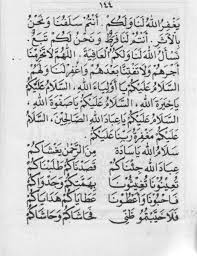 ١٤٤
يَغْفِرُ اللهُ لَنَا وَلَكُمْ . أَنْتُمْ سَلَفُنَا وَنَحْنُ
بِالْأَثَرِ . أَنْتُمْ لَنَا فَرَطٌ وَ نَحْنُ لَكُمْ تَبَعٌ
نَسْأَلُ اللهَ لَنَا وَلَكُمُ الْعَافِيَةَ . اَللّٰهُمَّ لَا تَحْرِمْنَا
أَجْرَهُمْ وَلَا تَفْتِنَّا بَعْدَهُمْ وَاغْفِرْ لَنَا وَلَهُمْ
اَلسَّلَامُ عَلَيْكُمْ يَا أَوْلِيَاءَ اللهِ . اَلسَّلَامُ عَلَيْكُمْ
يَا خِيَرَةَ اللهِ . اَلسَّلَامُ عَلَيْكُمْ يَا صَفْوَةَ اللهِ .
اَلسَّلَامُ عَلَيْكُمْ عِبَادَ اللهِ الصَّالِحِيْنَ . اَلسَّلَامُ
عَلَيْكُمْ مَغْفِرَةُ رَبِّنَا عَلَيْكُمْ .
سَلَامُ اللهِ يَا سَادَةْ مِنَ الرَّحْمٰنِ يَغْشَاكُمْ
عِبَادَ اللهِ جِئْنَاكُمْ قَصَدْنَاكُمْ طَلَبْنَاكُمْ
تُعِيْنُوْنَا تُغِيْثُوْنَا بِهِمَّتِكُمْ وَجَدْوَاكُمْ
فَأَحْبُوْنَا وَأَعْطُوْنَا عَطَايَاكُمْ هَدَايَاكُمْ
فَلَا خَيَّبْتُمُوْ ظَنِّيْ فَحَاشَاكُمْ وَحَاشَاكُمْ